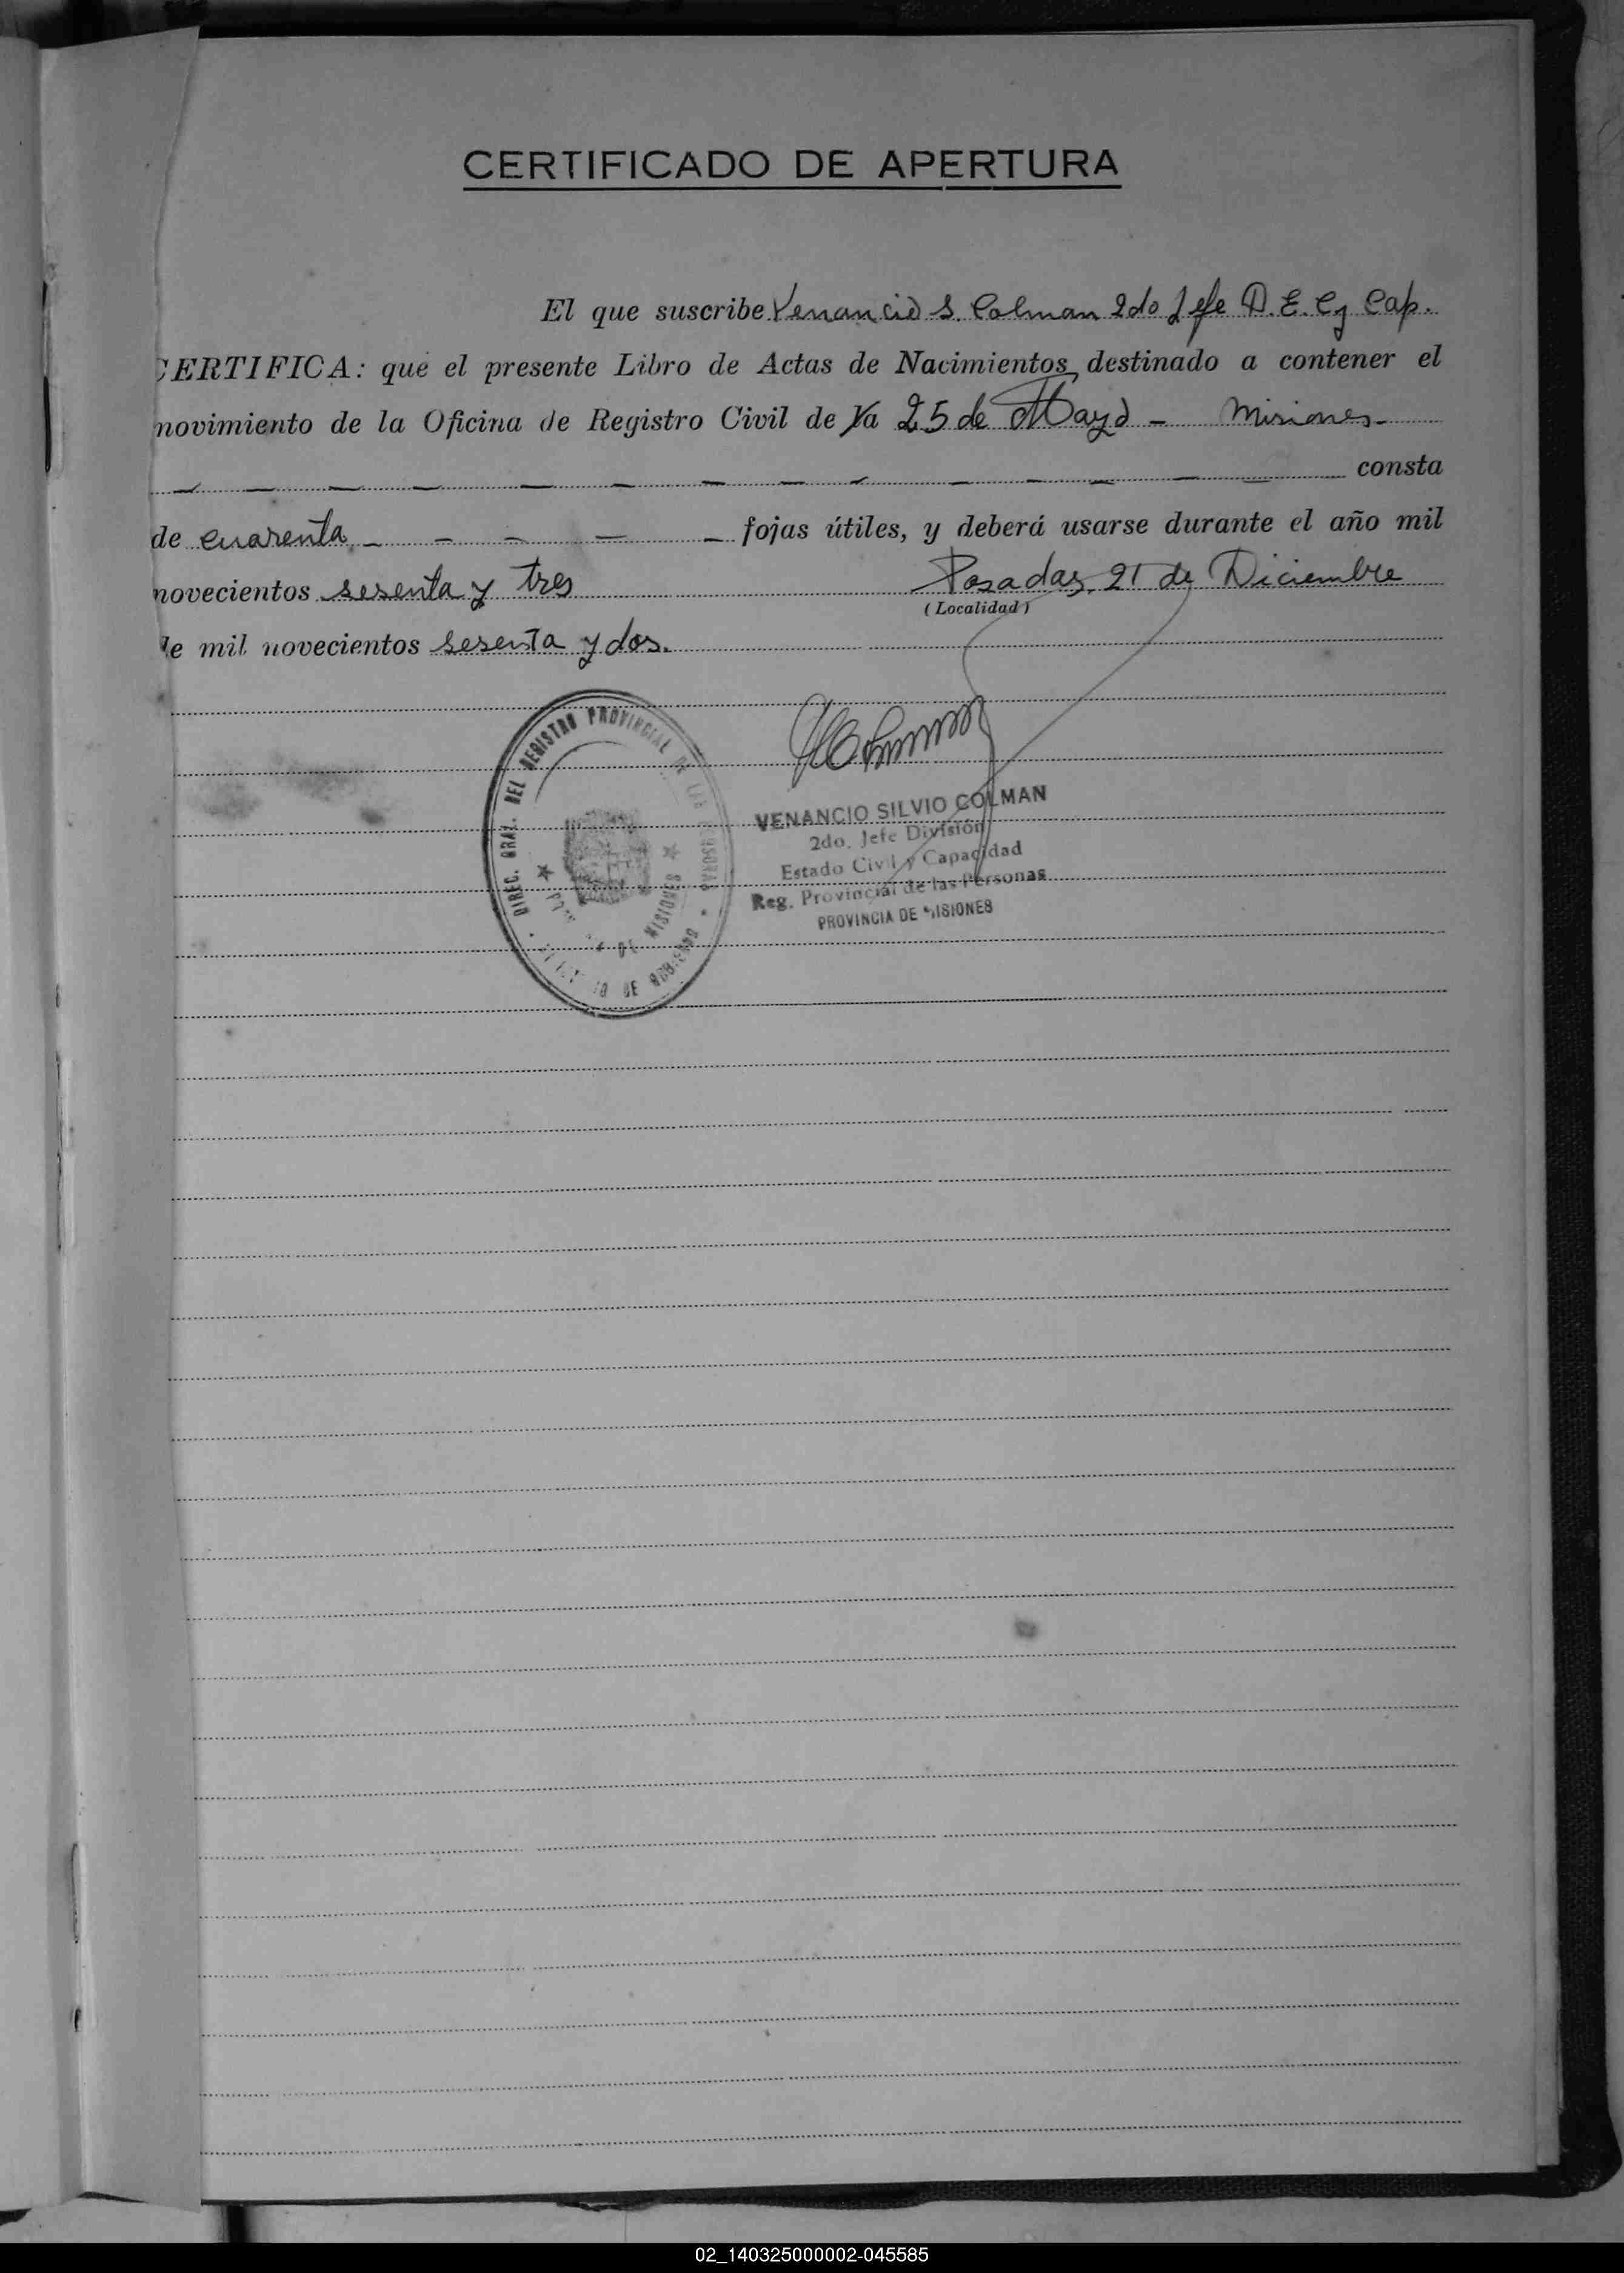 CERTIFICADO DE APERTURA
El que suscribe Venancio S. Colman 2do Jefe D. E. C y Cap.
CERTIFICA: que el presente Libro de Actas de Nacimientos, destinado a contener el
movimiento de la Oficina de Registro Civil de 25 de Mayo - Misiones -
consta
de cuarenta - - - - - fojas útiles, y deberá usarse durante el año mil
novecientos sesenta y tres Posadas, 21 de Diciembre
(Localidad)
de mil novecientos sesenta y dos.
DIREC. GRAL. DEL REGISTRO PROVINCIAL DE LAS PERSONAS
DE GOBIERNO
DE MISIONES
VENANCIO SILVIO COLMAN
2do. Jefe División
Estado Civil y Capacidad
Reg. Provincial de las Personas
PROVINCIA DE MISIONES
02_140325000002-045585